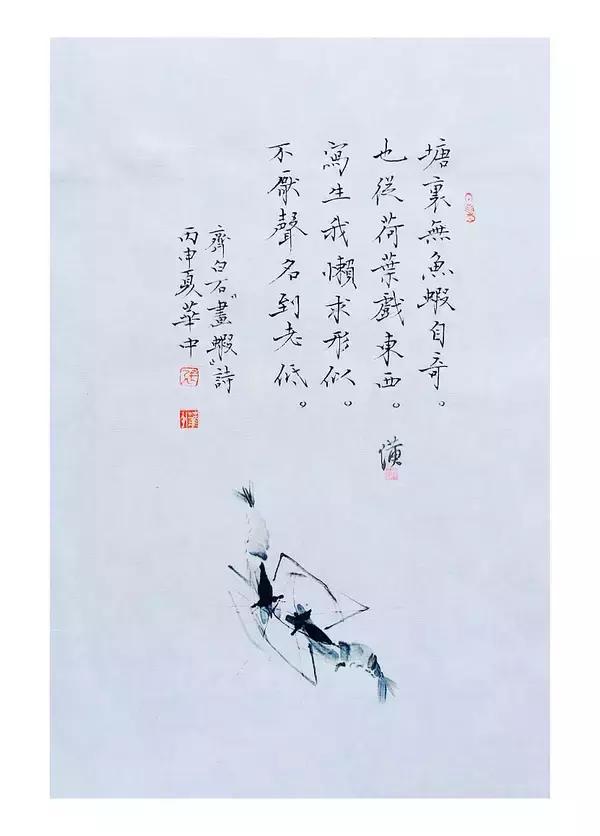 塘裏無魚蝦自奇。
也從荷葉戲東西。
寫生我懶求形似。
不厭聲名到老低。
齊白石“畫蝦”詩
丙申夏華中
漢